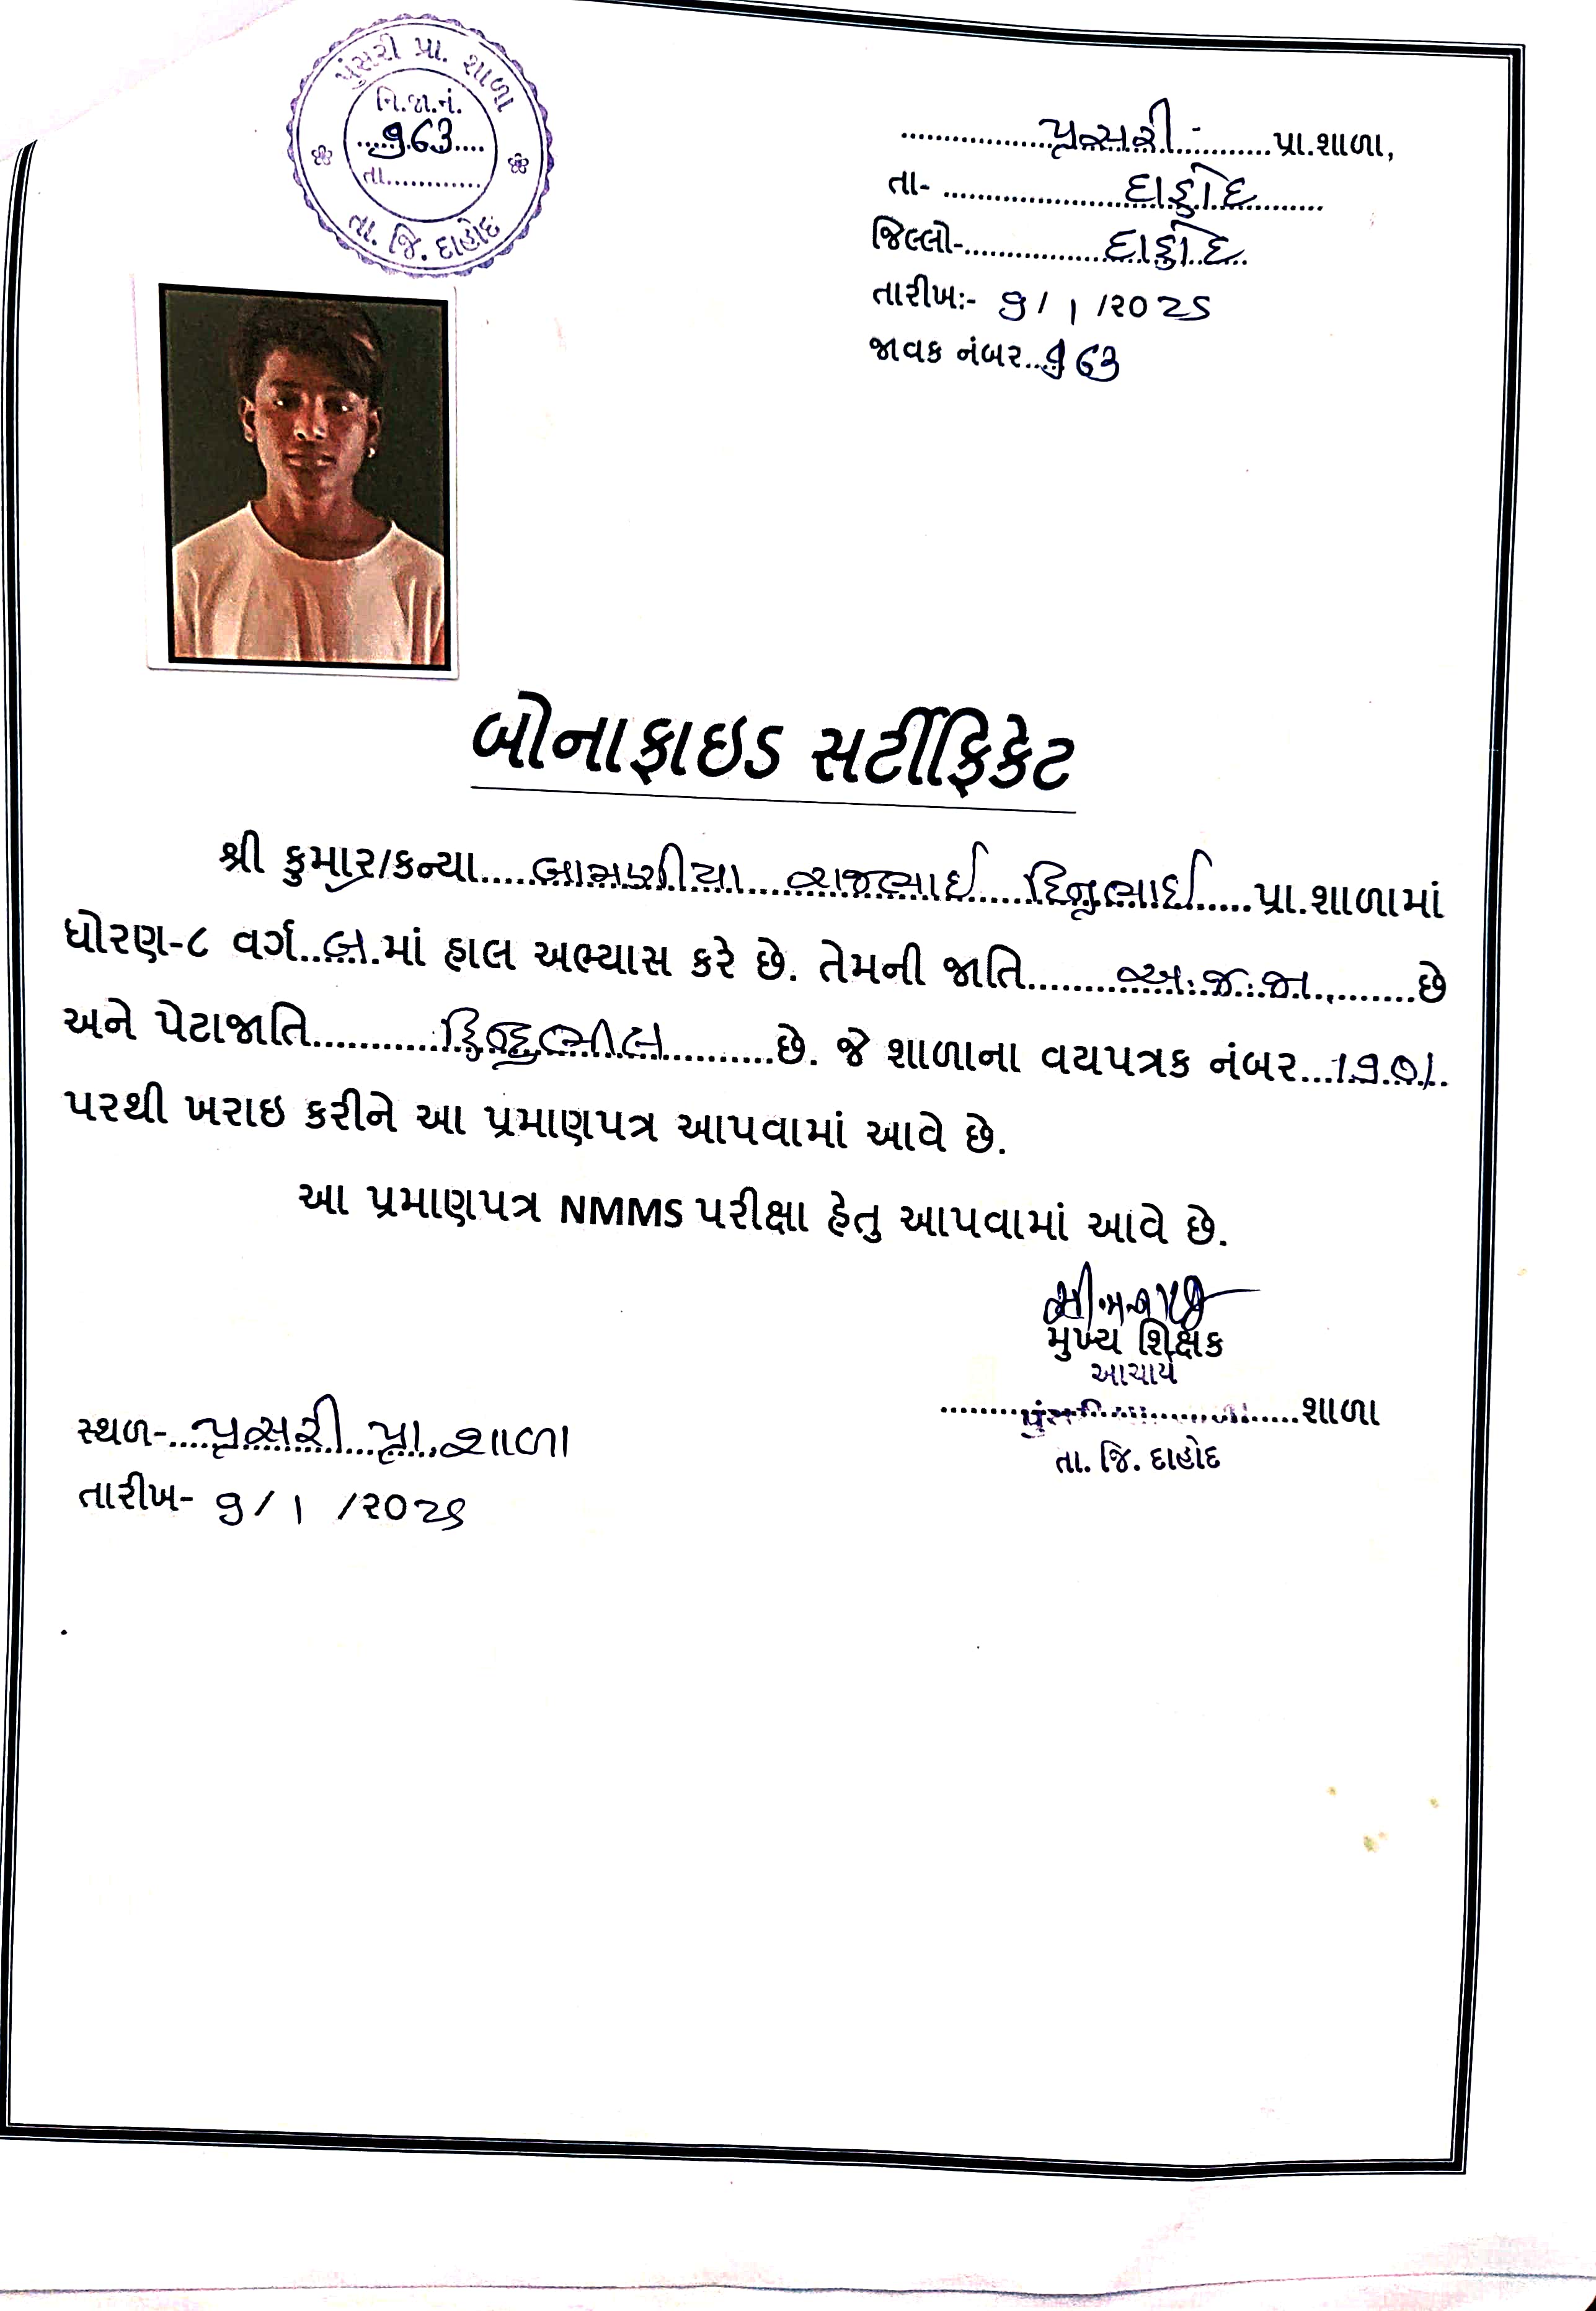 પુંસરી પ્રા. શાળા
નિ.જા.નં.
૧63
તા.............
તા. જિ. દાહોદ
પુંસરી પ્રા.શાળા,
તા- દાહોદ
જિલ્લો- દાહોદ
તારીખ:- ૭/૧/૨૦૨૬
જાવક નંબર ૧63
બોનાફાઇડ સર્ટીફિકેટ
શ્રી કુમાર/કન્યા બામણીયા રાજભાઈ દિનુભાઈ પ્રા.શાળામાં
ધોરણ-૮ વર્ગ બ માં હાલ અભ્યાસ કરે છે. તેમની જાતિ અ.જ.જા. છે
અને પેટાજાતિ હિન્દુભીલ છે. જે શાળાના વયપત્રક નંબર
પરથી ખરાઇ કરીને આ પ્રમાણપત્ર આપવામાં આવે છે.
આ પ્રમાણપત્ર NMMS પરીક્ષા હેતુ આપવામાં આવે છે.
મુખ્ય શિક્ષક
આચાર્ય
શાળા
તા. જિ. દાહોદ
સ્થળ- પુંસરી પ્રા. શાળા
તારીખ- ૭/૧/૨૦૨૬